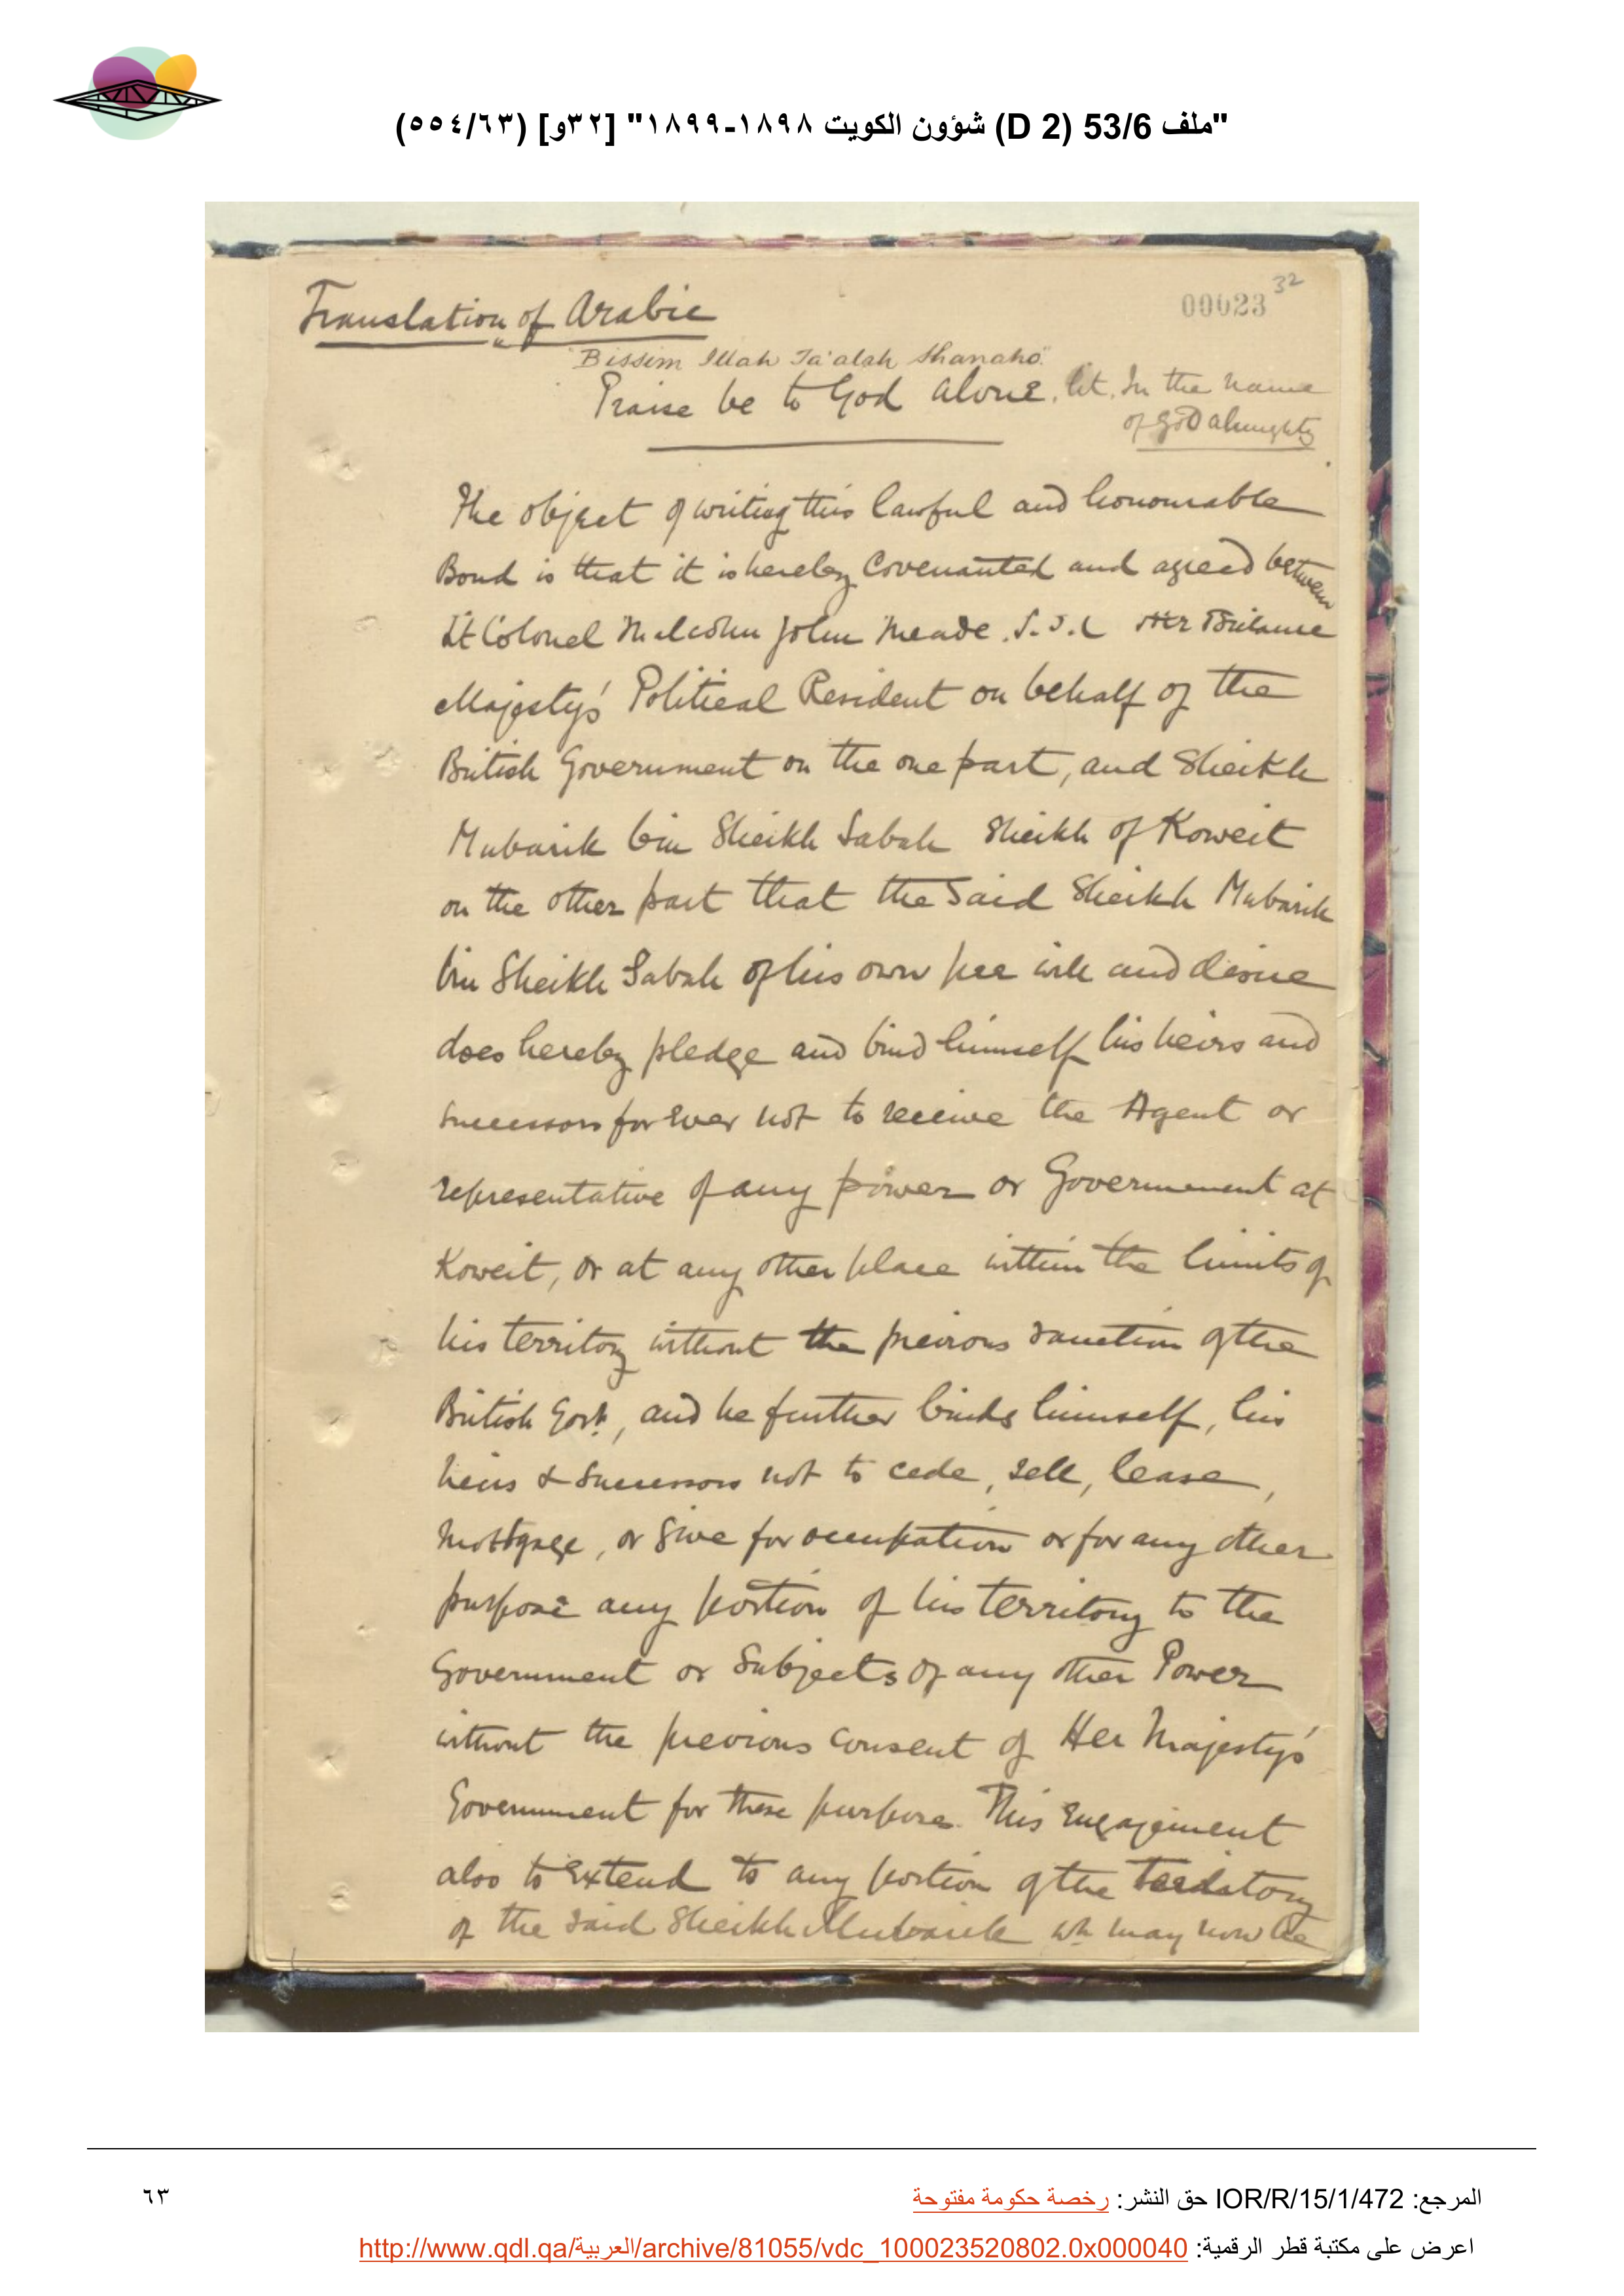 "ملف 53/6 (D 2) شؤون الكويت ١٨٩٨-١٨٩٩" [٣٢و] (٥٥٤/٦٣)
32
00023
Translation of Arabic
"Bissim Illah Ta'alah Shanaho"
Praise be to God alone. lit. In the name
of God almighty
The object of writing this lawful and honourable
Bond is that it is hereby Covenanted and agreed between
Lt Colonel Malcolm John Meade. I.S.C Her Britannic
Majesty's Political Resident on behalf of the
British Government on the one part, and Sheikh
Mubarik bin Sheikh Sabah Sheikh of Koweit
on the other part that the said Sheikh Mubarik
bin Sheikh Sabah of his own free will and desire
does hereby pledge and bind himself his heirs and
successors for ever not to receive the Agent or
representative of any power or Government at
Koweit, or at any other place within the limits of
his territory without the previous sanction of the
British Govt, and he further binds himself, his
heirs & successors not to cede, sell, lease,
mortgage, or give for occupation or for any other
purpose any portion of his territory to the
Government or Subjects of any other Power
without the previous consent of Her Majesty's
Government for these purposes. This Engagement
also to extend to any portion of the territory
of the said Sheikh Mubarik wh may now be
المرجع: IOR/R/15/1/472 حق النشر: رخصة حكومة مفتوحة
٦٣
اعرض على مكتبة قطر الرقمية: http://www.qdl.qa/العربية/archive/81055/vdc_100023520802.0x000040